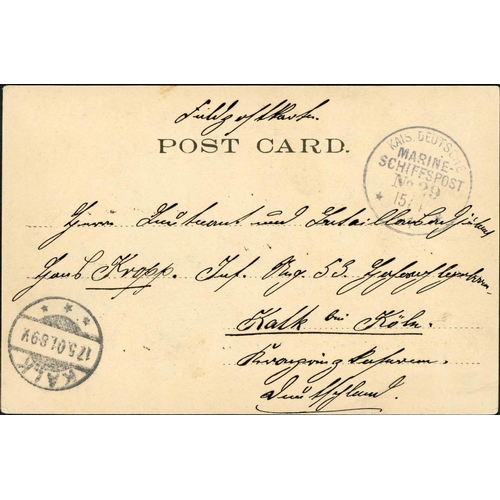 Feldpostkarte.
POST CARD.
KAIS. DEUTSCHE
MARINE-
SCHIFFSPOST
No 29
* 15/
Herrn Leutnant und Bataillonsadjutant
Hans Kropp. Inf. Reg. 53.
Kalk bei Köln.
Kronprinzkaserne.
Deutschland.
17.5.01.8-9V.
KALK